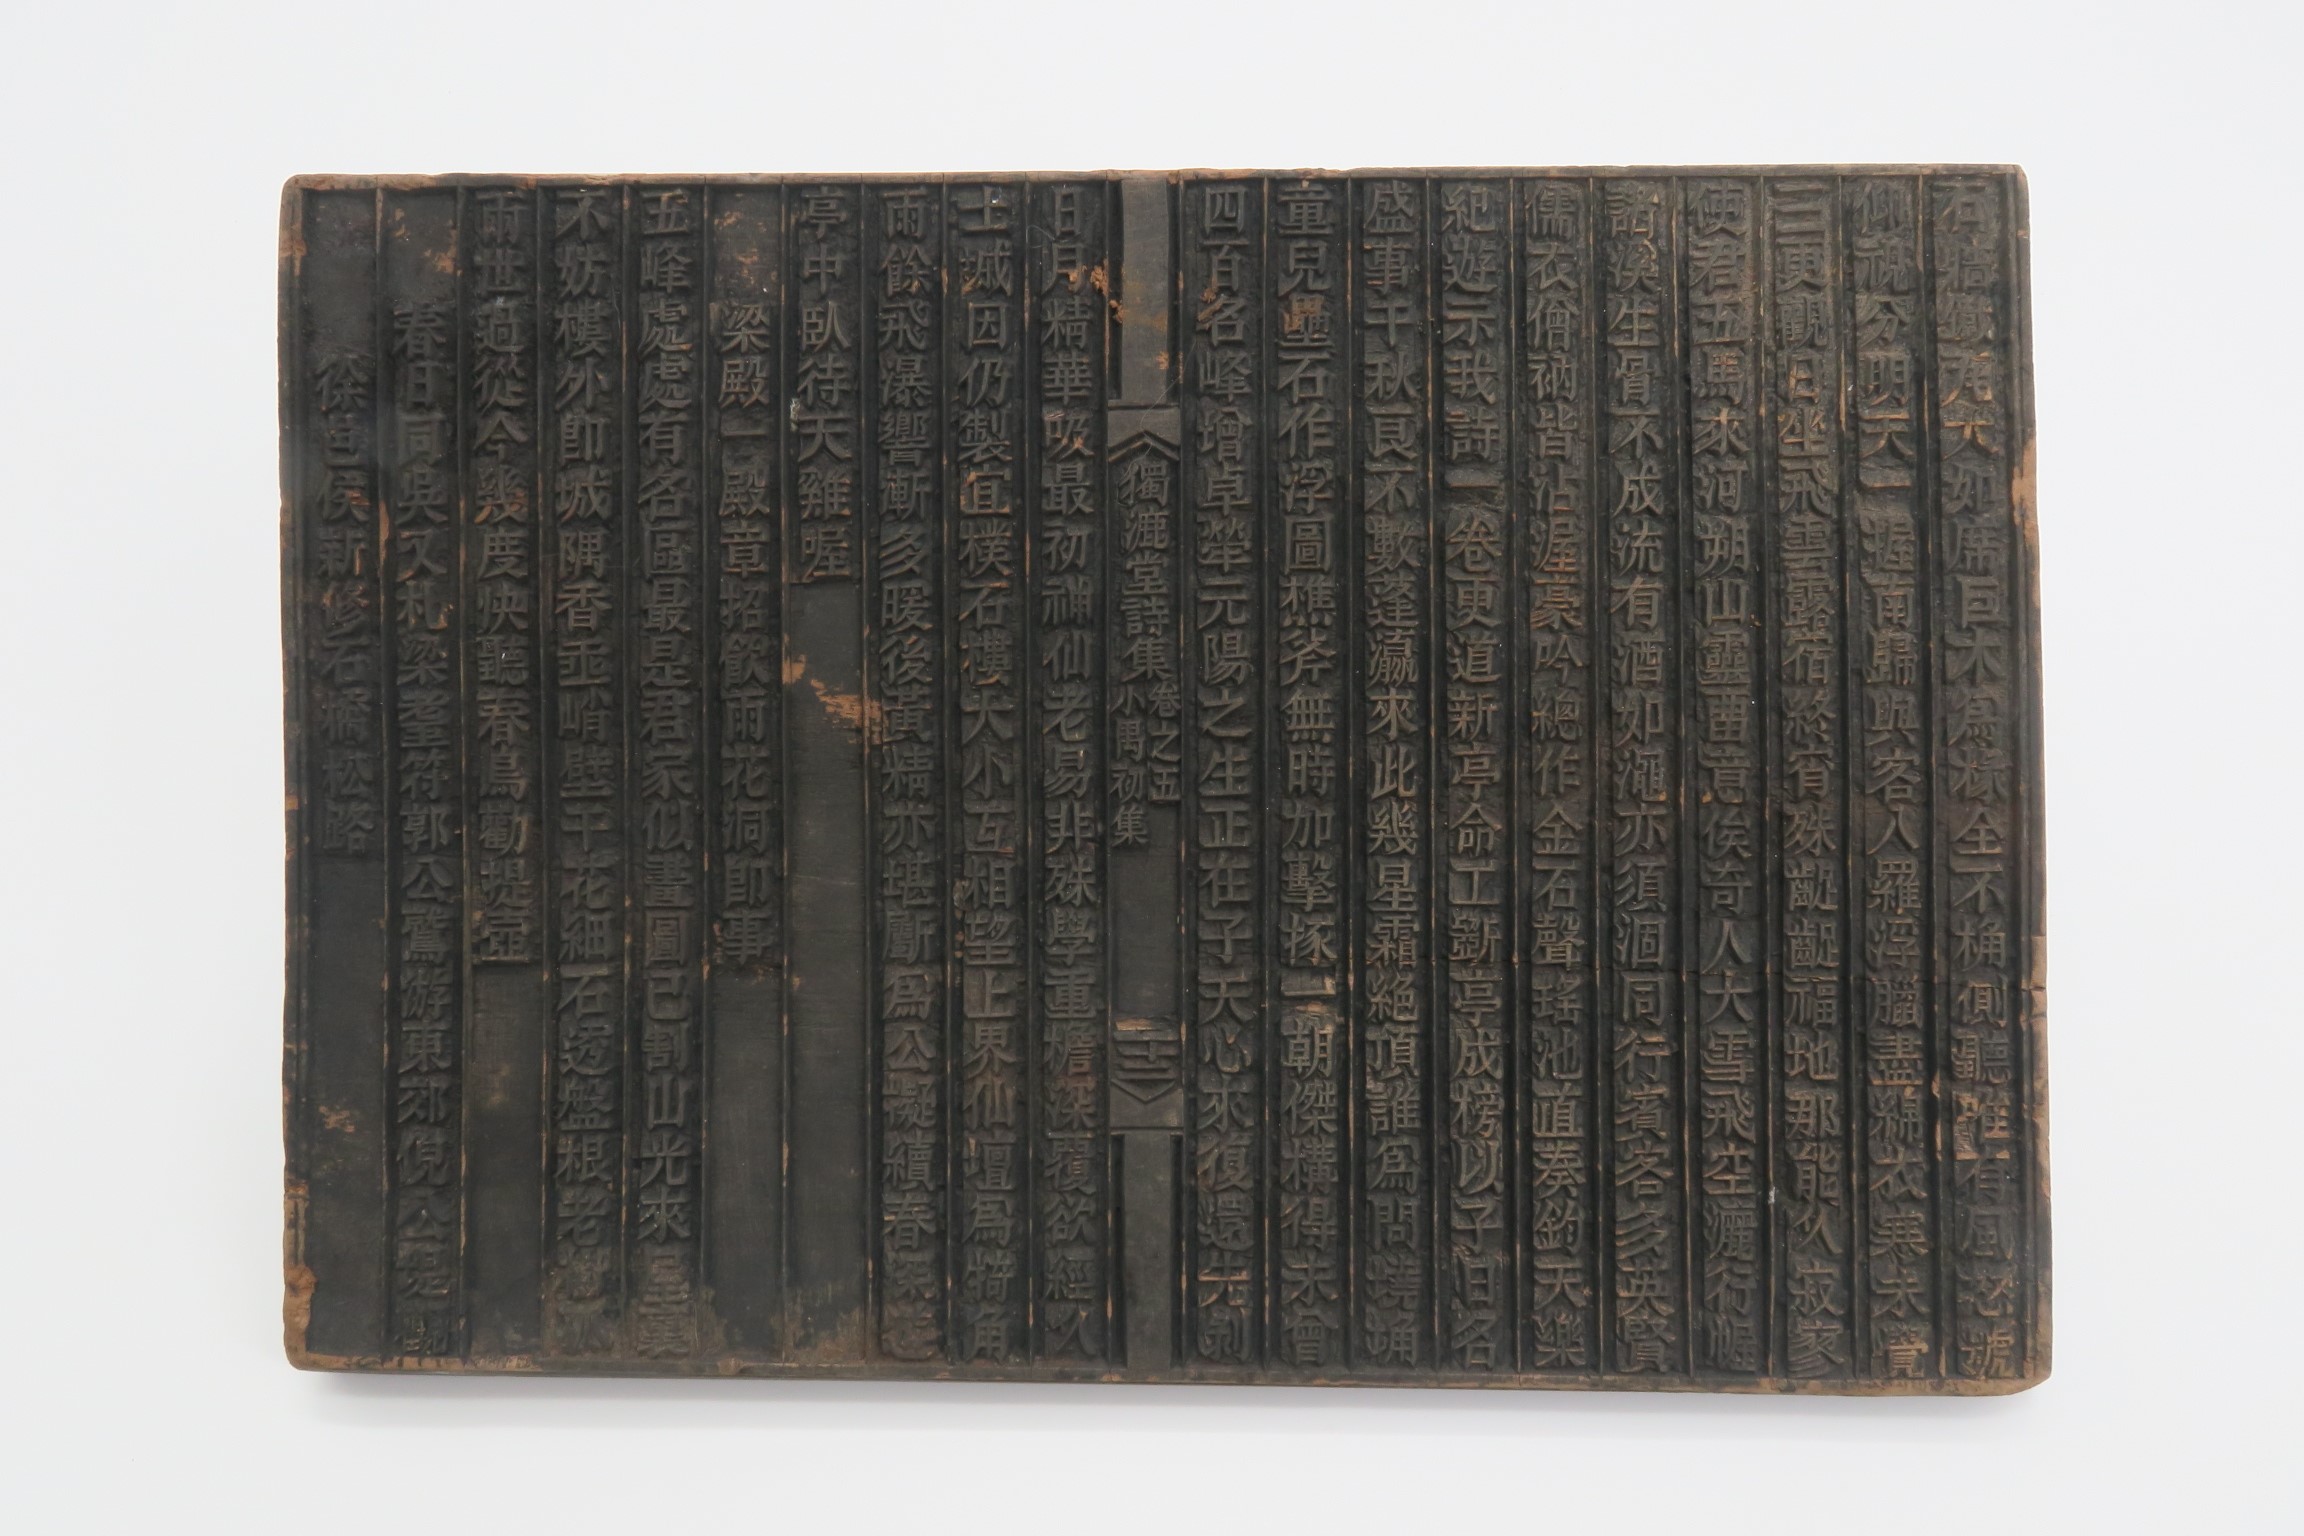 石牆鐵瓦大如席巨木為椽全不桷側聽雖有風怒號
仰視分明天一握南歸與客入羅浮臘盡綿衣寒未覺
三更觀日坐飛雲露宿終宵殊齷齪福地那能久寂寥
使君五馬來河朔山靈留意俟奇人大雪飛空灑行幄
諧溪生骨不成流有酒如澠亦須涸同行賓客多英賢
儒衣僧衲皆沾渥豪吟總作金石聲瑤池直奏鈞天樂
紀遊示我詩一卷更道新亭命工斲亭成榜以子日名
盛事千秋良不數蓬瀛來此幾星霜絕頂誰為問墝埆
童兒壘石作浮圖樵斧無時加擊㧻一朝傑構得未曾
四百名峰增卓犖元陽之生正在子天心來復還先剝
獨漉堂詩集 卷之五 小禺初集 二十三
日月精華吸最初神仙老易非殊學重檐深覆欲經久
土墄因仍製宜樸石樓大小互相望上界仙壇為犄角
雨餘飛瀑響漸多暖後黃精亦堪斸為公擬續春深
亭中臥待天雞喔
梁殿一殿章招飲雨花洞即事
五峰處處有名區最是君家似畫圖已割山光來
不妨樓外即城隅香垂峭壁千花細石透盤根老樹
兩世過從今幾度快聽春鳥勸提壺
春日同吳又札梁耋符郭公鷟游東郊倪公堤觀
徐邑侯新修石橋松路